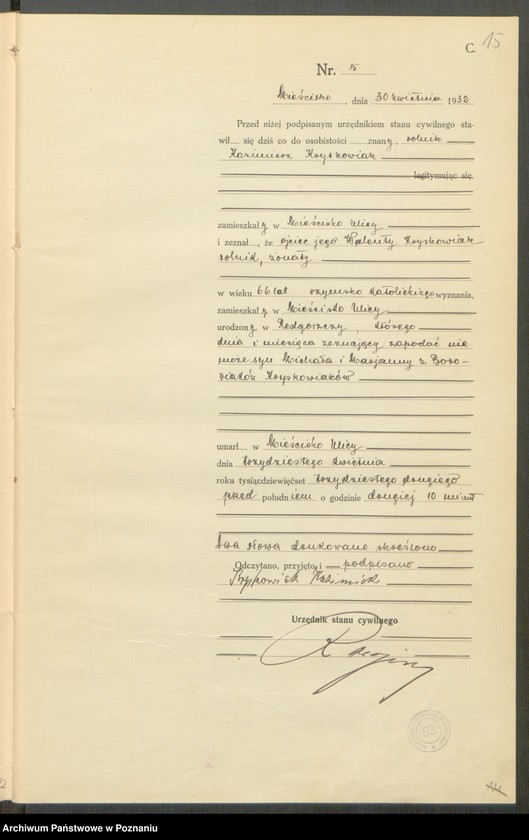 C. 15
Nr. 15
Mieścisko, dnia 30 kwietnia 1932
Przed niżej podpisanym urzędnikiem stanu cywilnego sta-
wił się dziś co do osobistości znany, rolnik
Kazimierz Kryskowiak
legitymując się
zamieszkały w Mieścisko Ulicy
i zeznał, że ojciec jego Walenty Kryskowiak
rolnik, żonaty
w wieku 66 lat rzymsko katolickiego wyznania,
zamieszkały w Mieścisko Ulicy
urodzony w Redgoszczy, którego
dnia i miesiąca zeznający zapodać nie
może syn Michała i Marjanny z Boro-
wiaków Kryskowiaków
umarł w Mieścisko Ulicy
dnia trzydziestego kwietnia
roku tysiącdziewięćset trzydziestego drugiego
przed południem o godzinie drugiej 10 minut
Dwa słowa drukowane skreślono
Odczytano, przyjęto i podpisano
Kryskowiak Kazimierz
Urzędnik stanu cywilnego
53
Archiwum Państwowe w Poznaniu